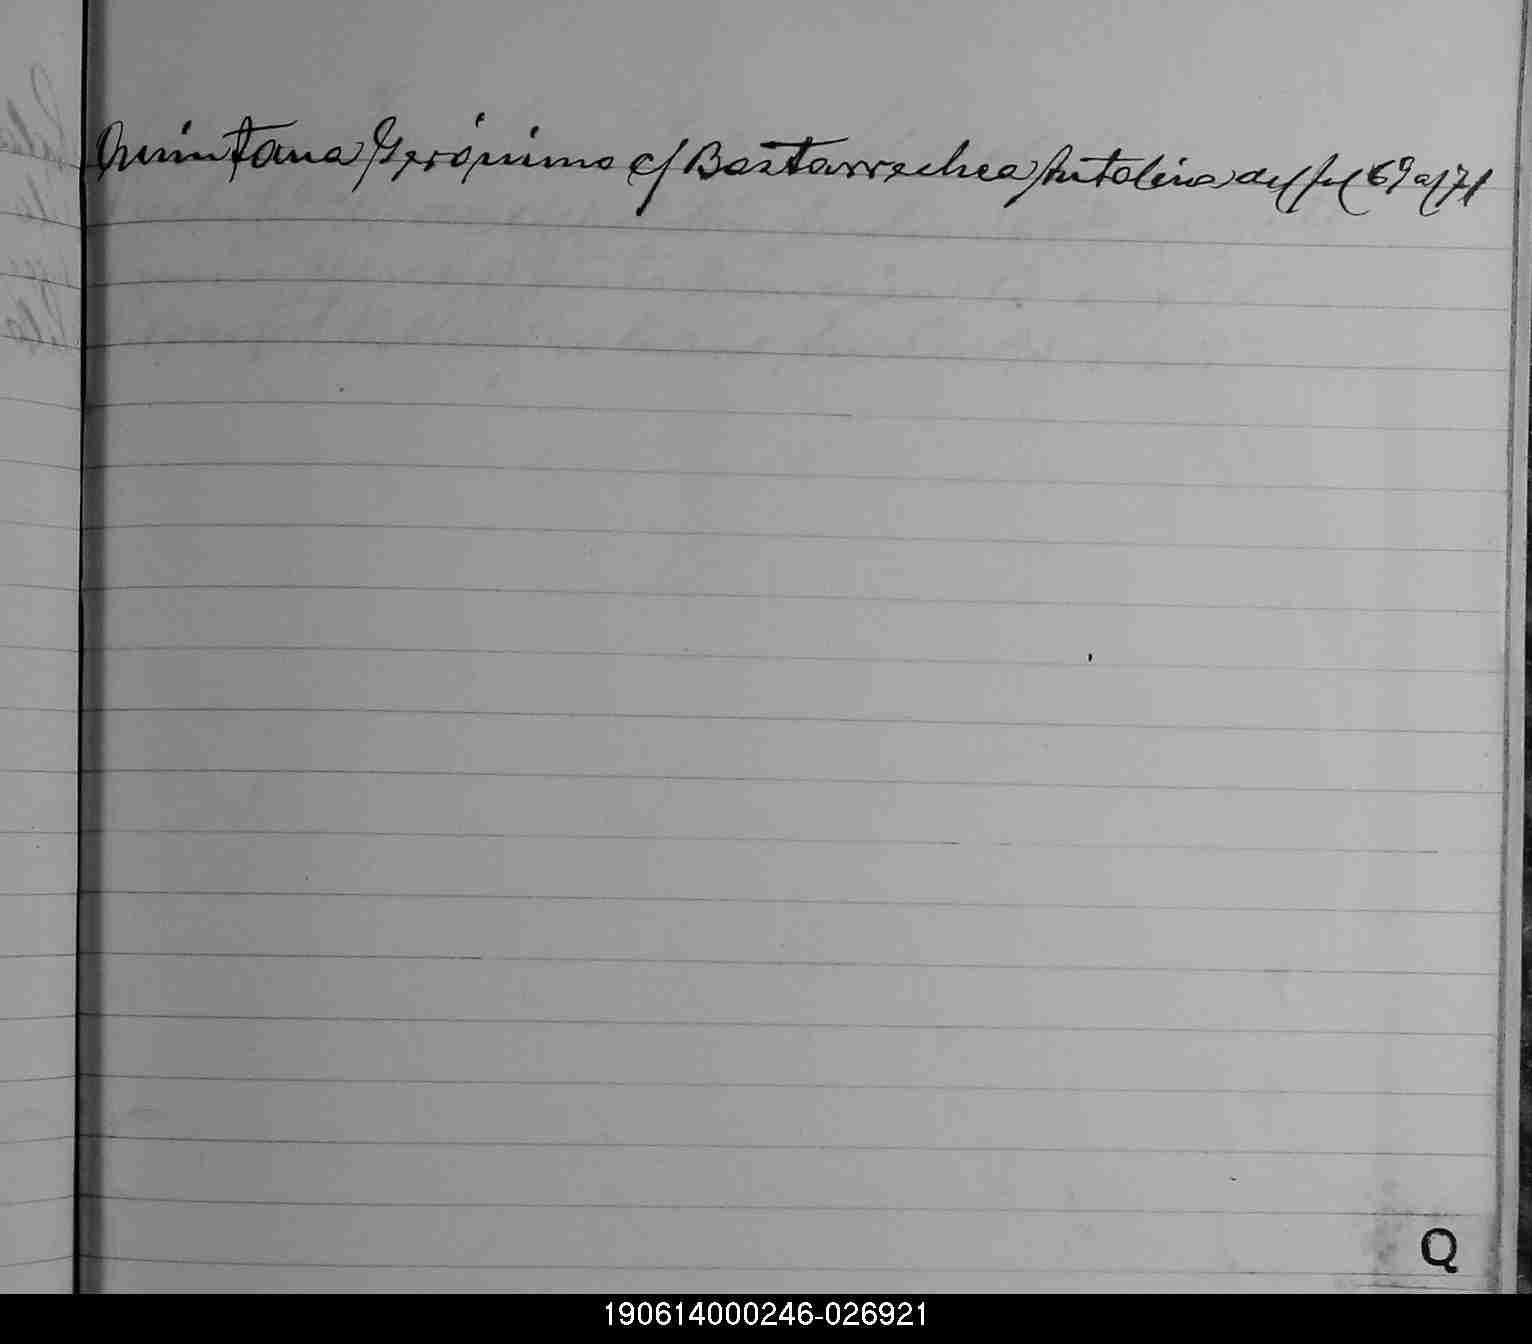 Quintana Gerónimo c/ Bastarrechea Antolina del fol 69 al 71
Q
190614000246-026921